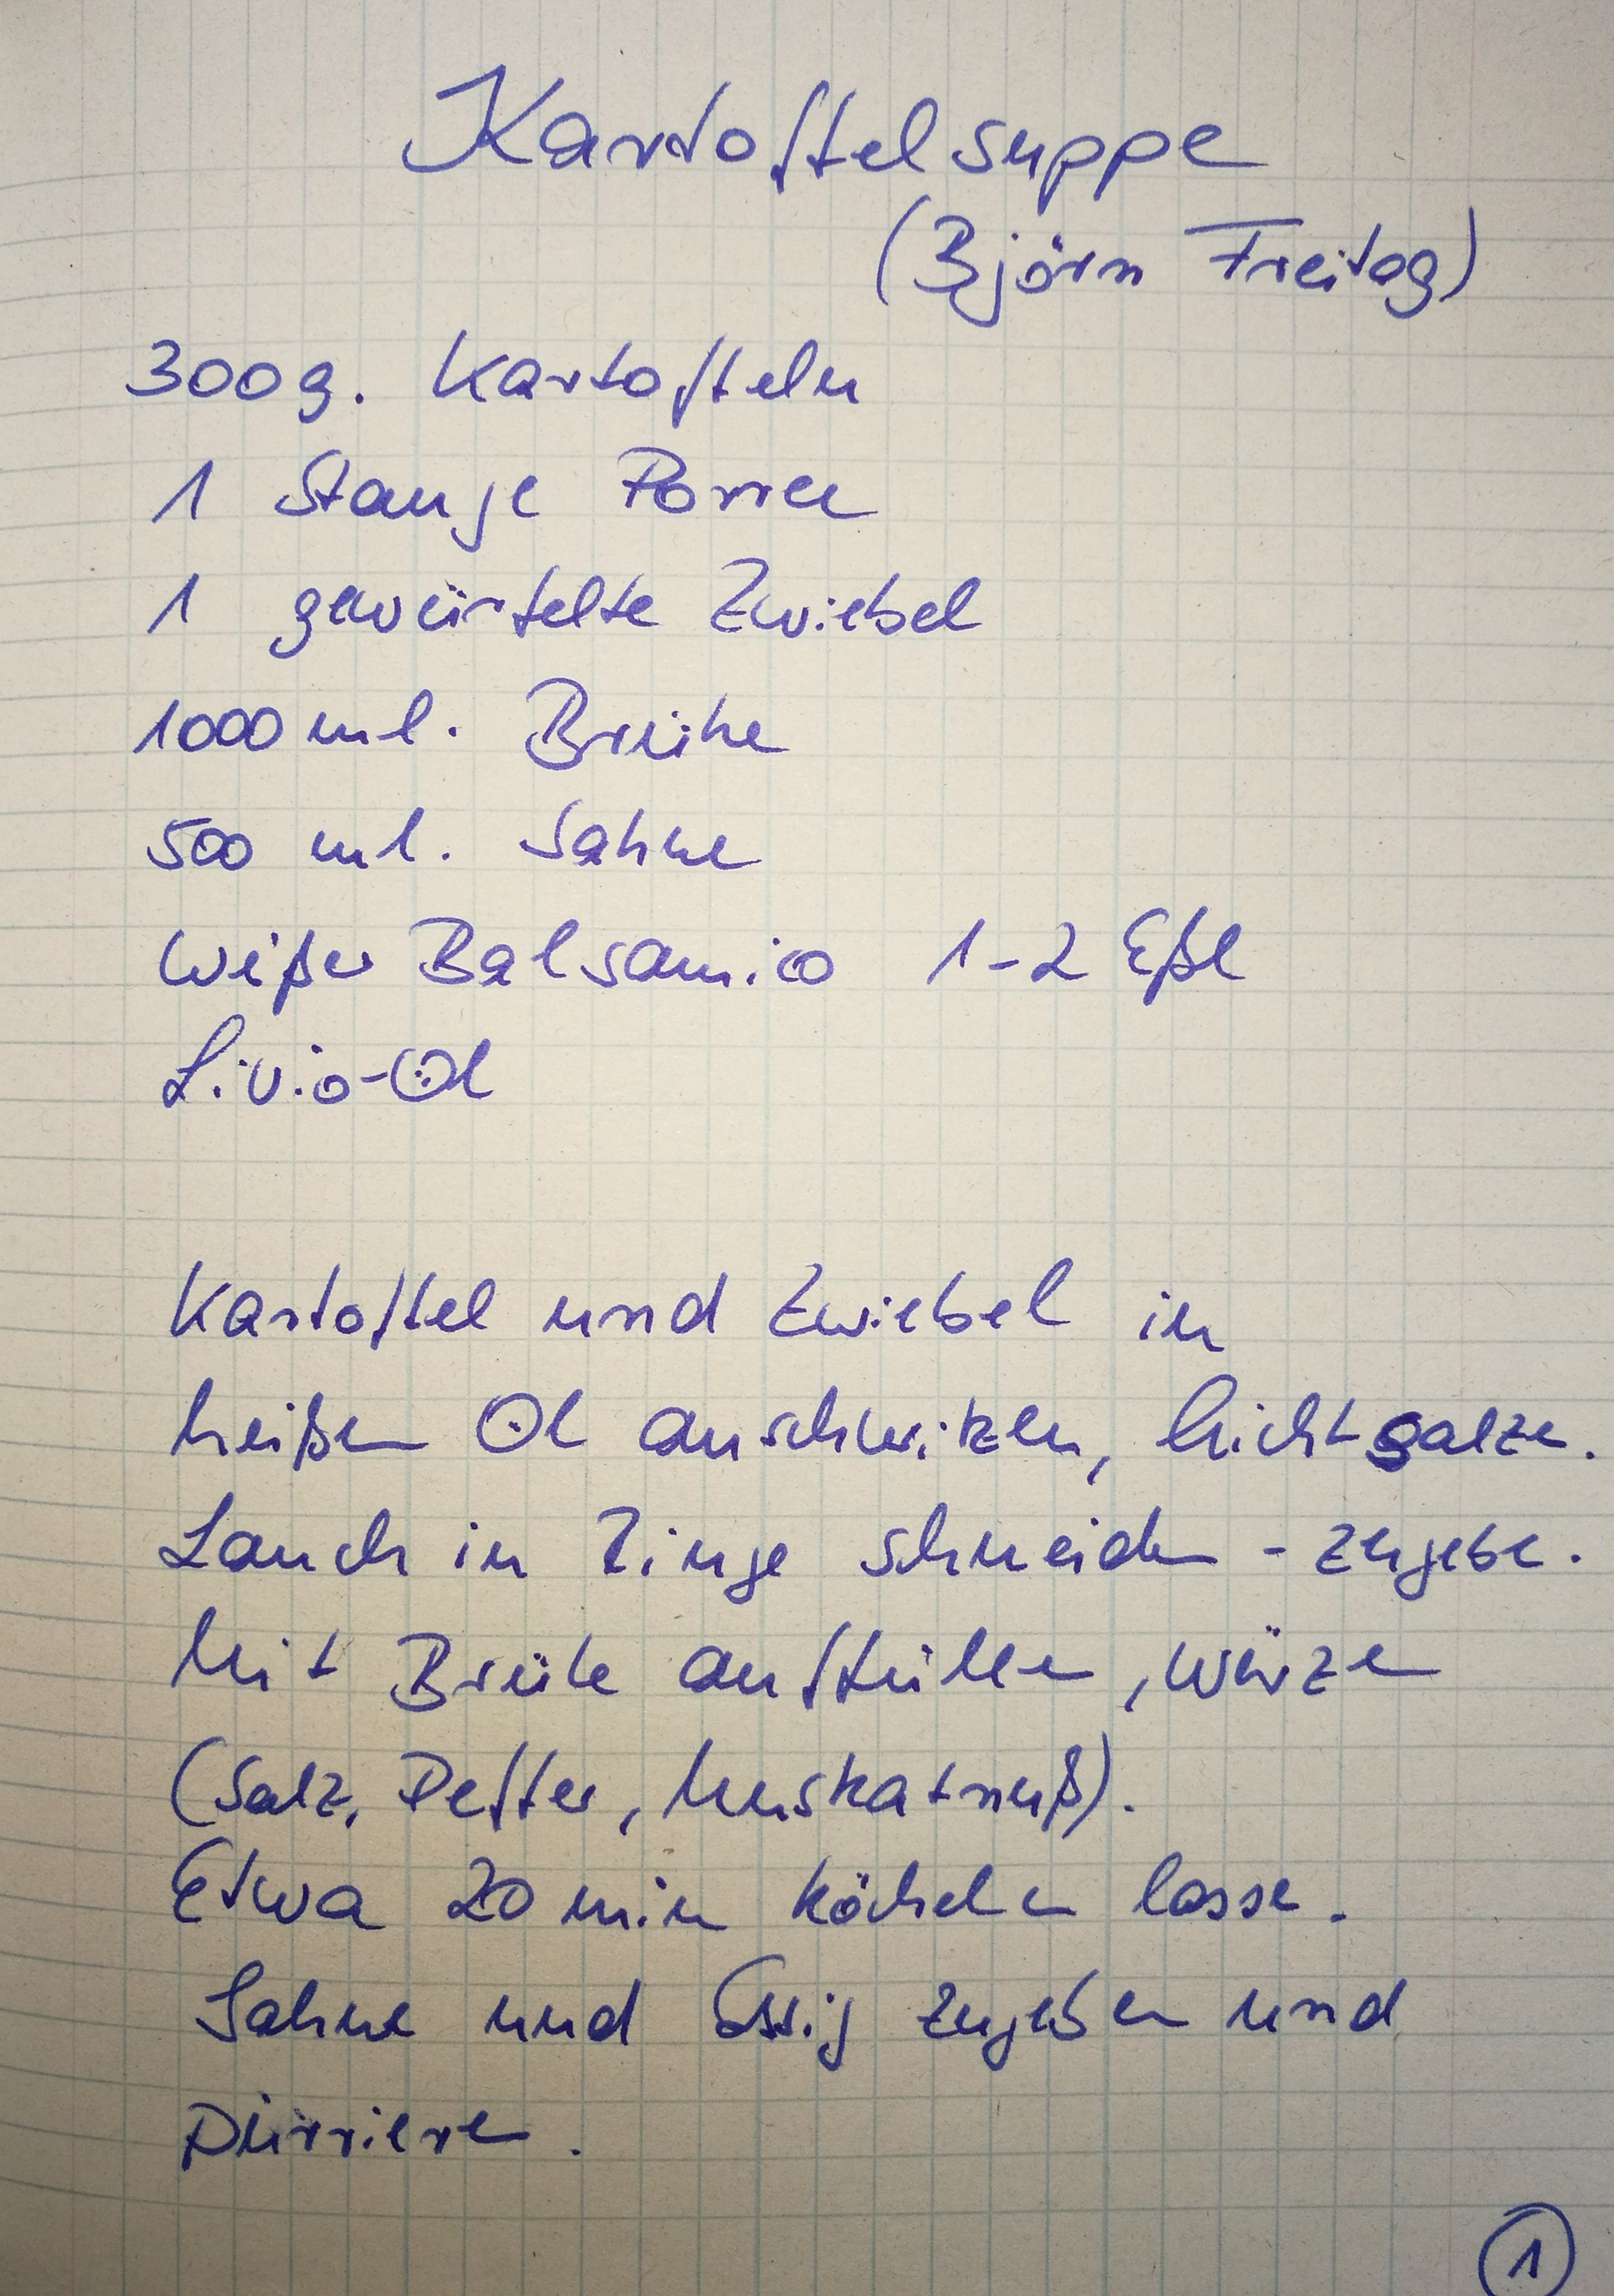 Kartoffelsuppe
(Björn Freitag)
300g. Kartoffeln
1 Stange Porree
1 gewürfelte Zwiebel
1000 ml. Brühe
500 ml. Sahne
Weißer Balsamico 1-2 Eßl
Livio-Öl
Kartoffel und Zwiebel in
heißen Öl anschwitzen, leicht salzen.
Lauch in Ringe schneiden - zugeben.
Mit Brühe auffüllen, würzen
(Salz, Peffer, Muskatnuß).
Etwa 20 min köcheln lassen.
Sahne und Essig zugeben und
Pürrieren.
1